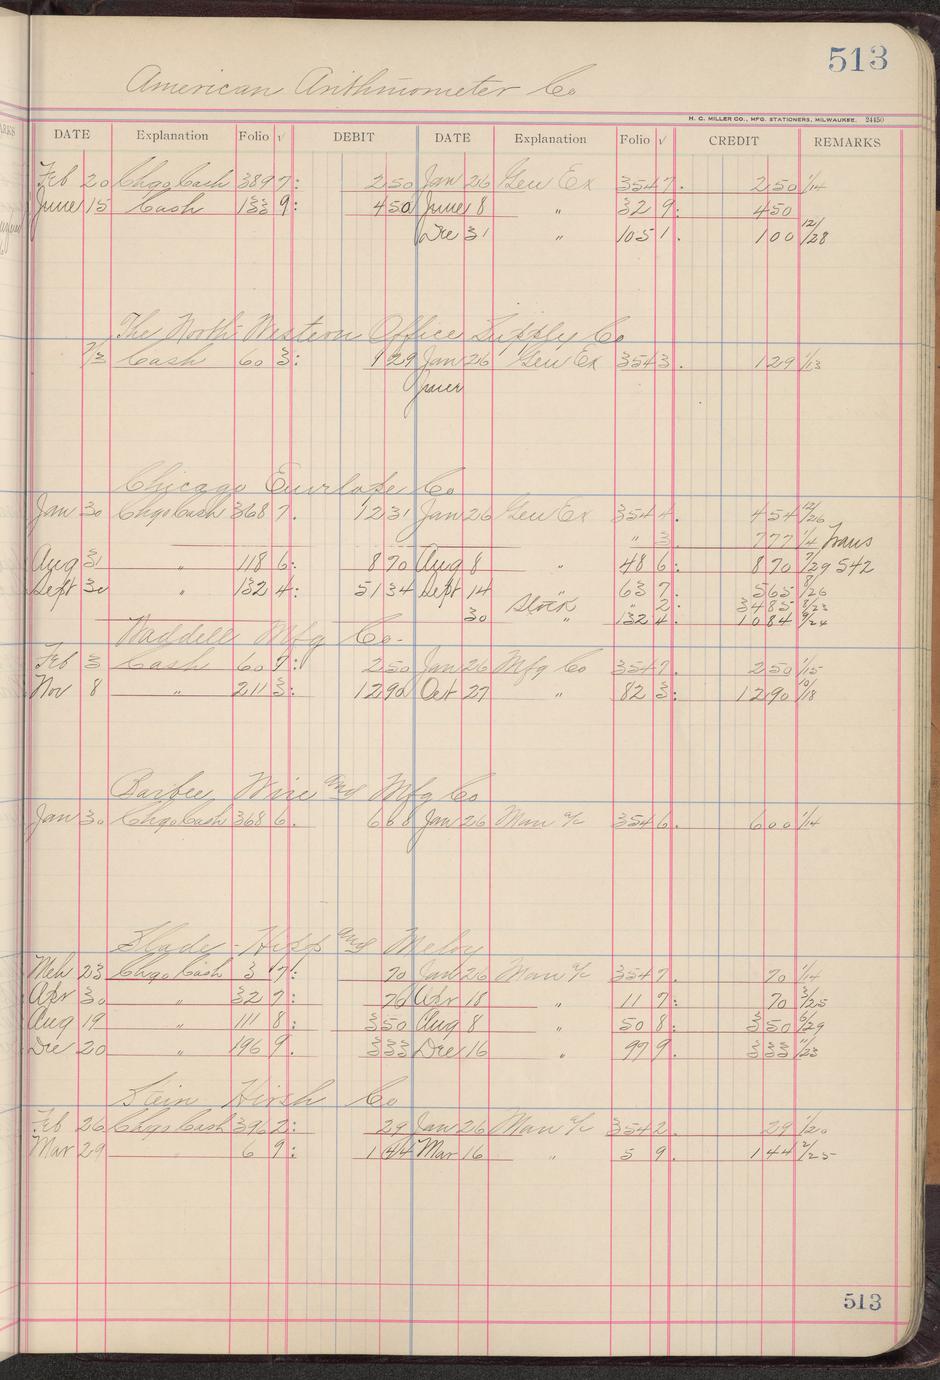 513
American Arithmometer Co
H. C. MILLER CO., MFG. STATIONERS, MILWAUKEE. 24450
DATE Explanation Folio √ DEBIT DATE Explanation Folio √ CREDIT REMARKS
Feb 20 Chgo Cash 389 7: 2 50 Jan 26 Gen Ex 354 7. 2 50 1/14
June 15 Cash 133 9: 4 50 June 8 " 32 9: 4 50
Dec 31 " 105 1. 1 00 12/28
The North Western Office Supply Co
2/3 Cash 60 3: 1 29 Jan 26 Gen Ex 354 3. 1 29 1/13
June
Chicago Envelope Co
Jan 30 Chgo Cash 368 7. 12 31 Jan 26 Gen Ex 354 4. 4 54 12/26
" 3. 7 77 1/4 Trans
Aug 31 " 118 6: 8 70 Aug 8 " 48 6: 8 70 7/29 542
Sept 30 " 132 4: 51 34 Sept 14 " 63 7. 5 65 8/26
Stock " 2: 34 85 8/23
30 " 132 4. 10 84 9/24
Waddell Mfg Co.
Feb 3 Cash 60 7: 2 50 Jan 26 Mfg Co 354 7. 2 50 1/15
Nov 8 " 211 3: 12 90 Oct 27 " 82 3: 12 90 10/18
Barbee Wire and Mfg Co
Jan 30 Chgo Cash 368 6. 6 00 Jan 26 Man a/c 354 6. 6 00 1/14
Slade Hipp and Meloy
Mch 23 Chgo Cash 3 7: 70 Jan 26 Man a/c 354 7. 70 1/14
Apr 30 " 32 7: 70 Apr 18 " 11 7: 70 3/25
Aug 19 " 111 8: 3 50 Aug 8 " 50 8: 3 50 6/29
Dec 20 " 196 9. 3 33 Dec 16 " 99 9. 3 33 11/23
Stein Hirsh Co
Feb 26 Chgo Cash 396 2: 29 Jan 26 Man a/c 354 2. 29 1/20
Mar 29 " 6 9: 1 44 Mar 16 " 5 9. 1 44 2/25
513